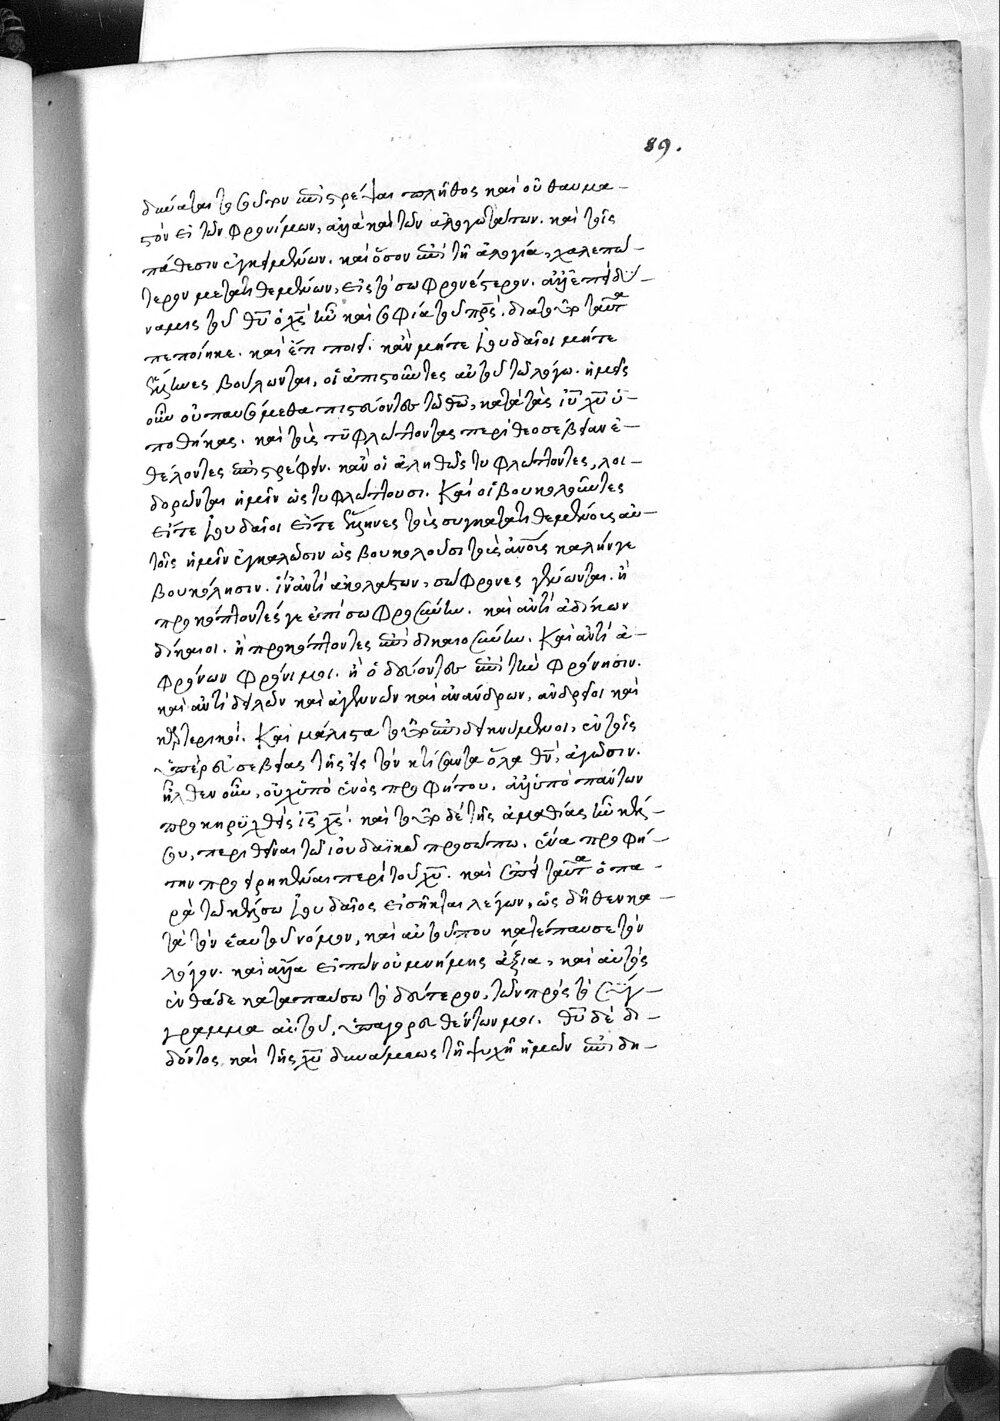 89.
δύναται τοσοῦτον ἐπιστρέψαι πλῆθος καὶ οὐ θαυμα-
στὸν εἰ τῶν φρονίμων, ἀλλὰ καὶ τῶν ἀλογωτάτων. καὶ τοῖς
πάθεσιν ἐγκειμένων. καὶ ὅσον ἐπὶ τῇ ἀλογίᾳ, χαλεπώ-
τερον μετατιθεμένων, εἰς τὸ σωφρονέστερον. ἀλλ' ἐπεὶ δύ-
ναμις τοῦ θῦ ὁ χς ἦν καὶ σοφία τοῦ πρς. διὰ τοῦτο ταῦτα
πεποίηκε. καὶ ἔτι ποιεῖ. κἂν μήτε ἰουδαῖοι μήτε
ἕλληνες βούλωνται, οἱ ἀπιστοῦντες αὐτοῦ τῷ λόγῳ. ἡμεῖς
οὖν οὐ παυσόμεθα πιστεύοντες τῷ θῶ, κατὰ τὰς ιῦ χῦ ὑ-
ποθήκας. καὶ τοὺς τυφλώττοντας περὶ θεοσέβειαν ἐ-
θέλοντες ἐπιστρέφειν. κἂν οἱ ἀληθῶς τυφλώττοντες, λοι-
δορῶνται ἡμῖν ὡς τυφλώττουσι. καὶ οἱ βουκολοῦντες
εἴτε ἰουδαῖοι εἴτε ἕλληνες τοὺς συγκατατιθεμένους αὐ-
τοῖς ἡμῖν ἐγκαλῶσιν ὡς βουκολοῦσι τοὺς ἀνους καλήν γε
βουκόλησιν. ἵν' ἀντὶ ἀκολάστων, σώφρονες γένωνται. ἢ
προκόπτοντές γε ἐπὶ σωφροσύνην. καὶ ἀντὶ ἀδίκων
δίκαιοι. ἢ προκόπτοντες ἐπὶ δικαιοσύνην. καὶ ἀντὶ ἀ-
φρόνων φρόνιμοι. ἢ ὁδεύοντες ἐπὶ τὴν φρόνησιν.
καὶ ἀντὶ δειλῶν καὶ ἀγεννῶν καὶ ἀνάνδρων, ἀνδρεῖοι καὶ
καρτερικοί. καὶ μάλιστα τοῦτο ἐπιδεικνύμενοι, ἐν τοῖς
ὑπὲρ εὐσεβείας τῆς εἰς τὸν κτίσαντα ὅλα θν, ἀγῶσιν.
ἦλθεν οὖν, οὐχ ὑπὸ ἑνὸς προφήτου, ἀλλ' ὑπὸ πάντων
προκηρυχθεὶς ις χς. καὶ τοῦτο δὲ τῆς ἀμαθίας ἦν κέλ-
σου, περιθεῖναι τῷ ἰουδαϊκῷ προσώπῳ. ἕνα προφή-
την προειρηκέναι περὶ τοῦ χῦ. καὶ ἐπεὶ ταῦτα ὁ πα-
ρὰ τῷ κέλσῳ ἰουδαῖος εἰσῆκται λέγων, ὡς δῆθεν κα-
τὰ τὸν ἑαυτοῦ νόμον, καὶ αὐτοῦ που κατέπαυσε τὸν
λόγον. καὶ ἄλλα εἰπὼν οὐ μνήμης ἄξια, καὶ αὐτὸς
ἐνθάδε καταπαύσω τὸ δεύτερον, τῶν πρὸς τὸ σύγ-
γραμμα αὐτοῦ, ὑπαγορευθέντων μοι. θῦ δὲ δι-
δόντος καὶ τῆς χῦ δυνάμεως τῇ ψυχῇ ἡμῶν ἐπιδη-